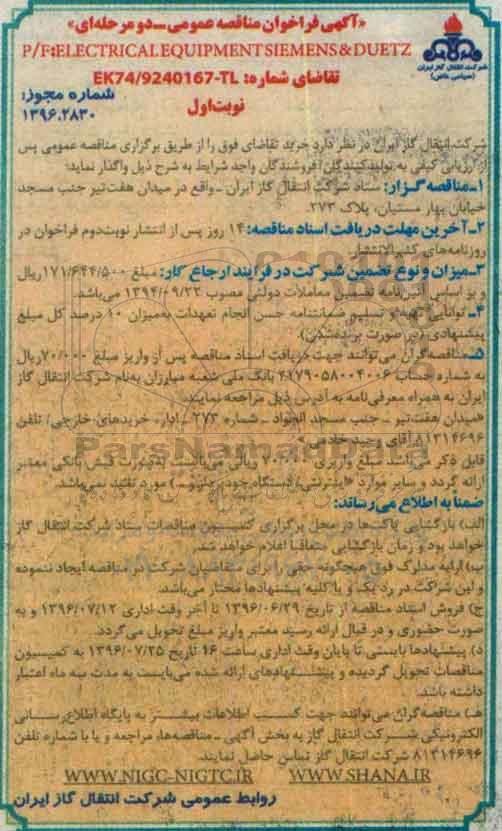 «آگهی فراخوان مناقصه عمومی ـ دو مرحله‌ای»
P/F:ELECTRICAL EQUIPMENT SIEMENS & DUETZ
شرکت انتقال گاز ایران
(سهامی خاص)
تقاضای شماره: EK74/9240167-TL
شماره مجوز:
۱۳۹۶.۲۸۳۰
نوبت اول
شرکت انتقال گاز ایران در نظر دارد خرید تقاضای فوق را از طریق برگزاری مناقصه عمومی پس
از ارزیابی کیفی به تولیدکنندگان/فروشندگان واجد شرایط به شرح ذیل واگذار نماید:
۱ـ مناقصه گزار: ستاد شرکت انتقال گاز ایران ـ واقع در میدان هفت‌تیر جنب مسجد
خیابان بهار مستیان، پلاک ۲۷۳
۲ـ آخرین مهلت دریافت اسناد مناقصه: ۱۴ روز پس از انتشار نوبت‌دوم فراخوان در
روزنامه‌های کثیرالانتشار
۳ـ میزان و نوع تضمین شرکت در فرآیند ارجاع کار: مبلغ ۱۷۱/۶۴۴/۵۰۰ ریال
و بر اساس آئین‌نامه تضمین معاملات دولتی مصوب ۱۳۹۴/۰۹/۲۲ می‌باشد.
۴ـ توانایی تهیه و تسلیم ضمانتنامه حسن انجام تعهدات به‌میزان ۱۰ درصد کل مبلغ
پیشنهادی (در صورت برنده‌شدن)
۵ـ مناقصه‌گران می‌توانند جهت دریافت اسناد مناقصه پس از واریز مبلغ ۷۰/۰۰۰ ریال
به شماره حساب ۴۱۷۹۰۵۸۰۰۴۰۰۶ بانک ملی شعبه مبارزان به‌نام شرکت انتقال گاز
ایران به همراه معرفی‌نامه به آدرس ذیل مراجعه نمایند.
«میدان هفت‌تیر ـ جنب مسجد الجواد ـ شماره ۲۷۳ ـ اداره خریدهای خارجی/ تلفن
۸۱۳۱۴۶۹۶ آقای وحید خادمی»
قابل ذکر می‌باشد مبلغ واریزی ۷۰/۰۰۰ ریالی می‌بایست به‌صورت فیش بانکی معتبر
ارائه گردد و سایر موارد «اینترنتی/دستگاه خودپرداز و ...» مورد تائید نمی‌باشد.
ضمناً به اطلاع می‌رساند:
الف) بازگشایی پاکت‌ها در محل برگزاری کمیسیون مناقصات ستاد شرکت انتقال گاز
خواهد بود و زمان بازگشایی متعاقبا اعلام خواهد شد.
ب) ارایه مدارک فوق هیچگونه حقی را برای متقاضیان شرکت در مناقصه ایجاد ننموده
و این شرکت در رد یک و یا کلیه پیشنهادها مختار می‌باشد.
ج) فروش اسناد مناقصه از تاریخ ۱۳۹۶/۰۶/۲۹ تا آخر وقت اداری ۱۳۹۶/۰۷/۱۲ و به
صورت حضوری و در قبال ارائه رسید معتبر واریز مبلغ تحویل می‌گردد.
د) پیشنهادها بایستی تا پایان وقت اداری ساعت ۱۶ تاریخ ۱۳۹۶/۰۷/۲۵ به کمیسیون
مناقصات تحویل گردیده و پیشنهادهای ارائه شده می‌بایست به مدت سه ماه اعتبار
داشته باشد.
هـ) مناقصه‌گران می‌توانند جهت کسب اطلاعات بیشتر به پایگاه اطلاع‌رسانی
الکترونیکی شرکت انتقال گاز به بخش آگهی ـ مناقصه‌ها، مراجعه و یا با شماره تلفن
۸۱۳۱۴۶۹۶ شرکت انتقال گاز تماس حاصل نمایند.
WWW.NIGC-NIGTC.IR WWW.SHANA.IR
روابط عمومی شرکت انتقال گاز ایران
ParsNamadData